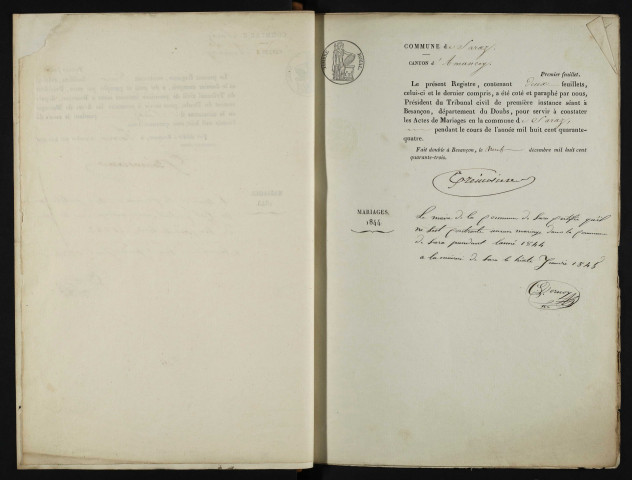 COMMUNE de Saraz
CANTON d'Amancey
Premier feuillet.
Le présent Registre, contenant Deux feuillets,
celui-ci et le dernier compris, a été coté et paraphé par nous,
Président du Tribunal civil de première instance séant à
Besançon, département du Doubs, pour servir à constater
les Actes de Mariages en la commune de Saraz
pendant le cours de l'année mil huit cent quarante-
quatre.
Fait double à Besançon, le décembre mil huit cent
quarante-trois.
MARIAGES,
1844.
Le maire de la commune de Sara certifie qu'il
ne s'est aucun mariage dans la commune
de Sara pendant l'année 1844
a la mairie de Sara le 1845